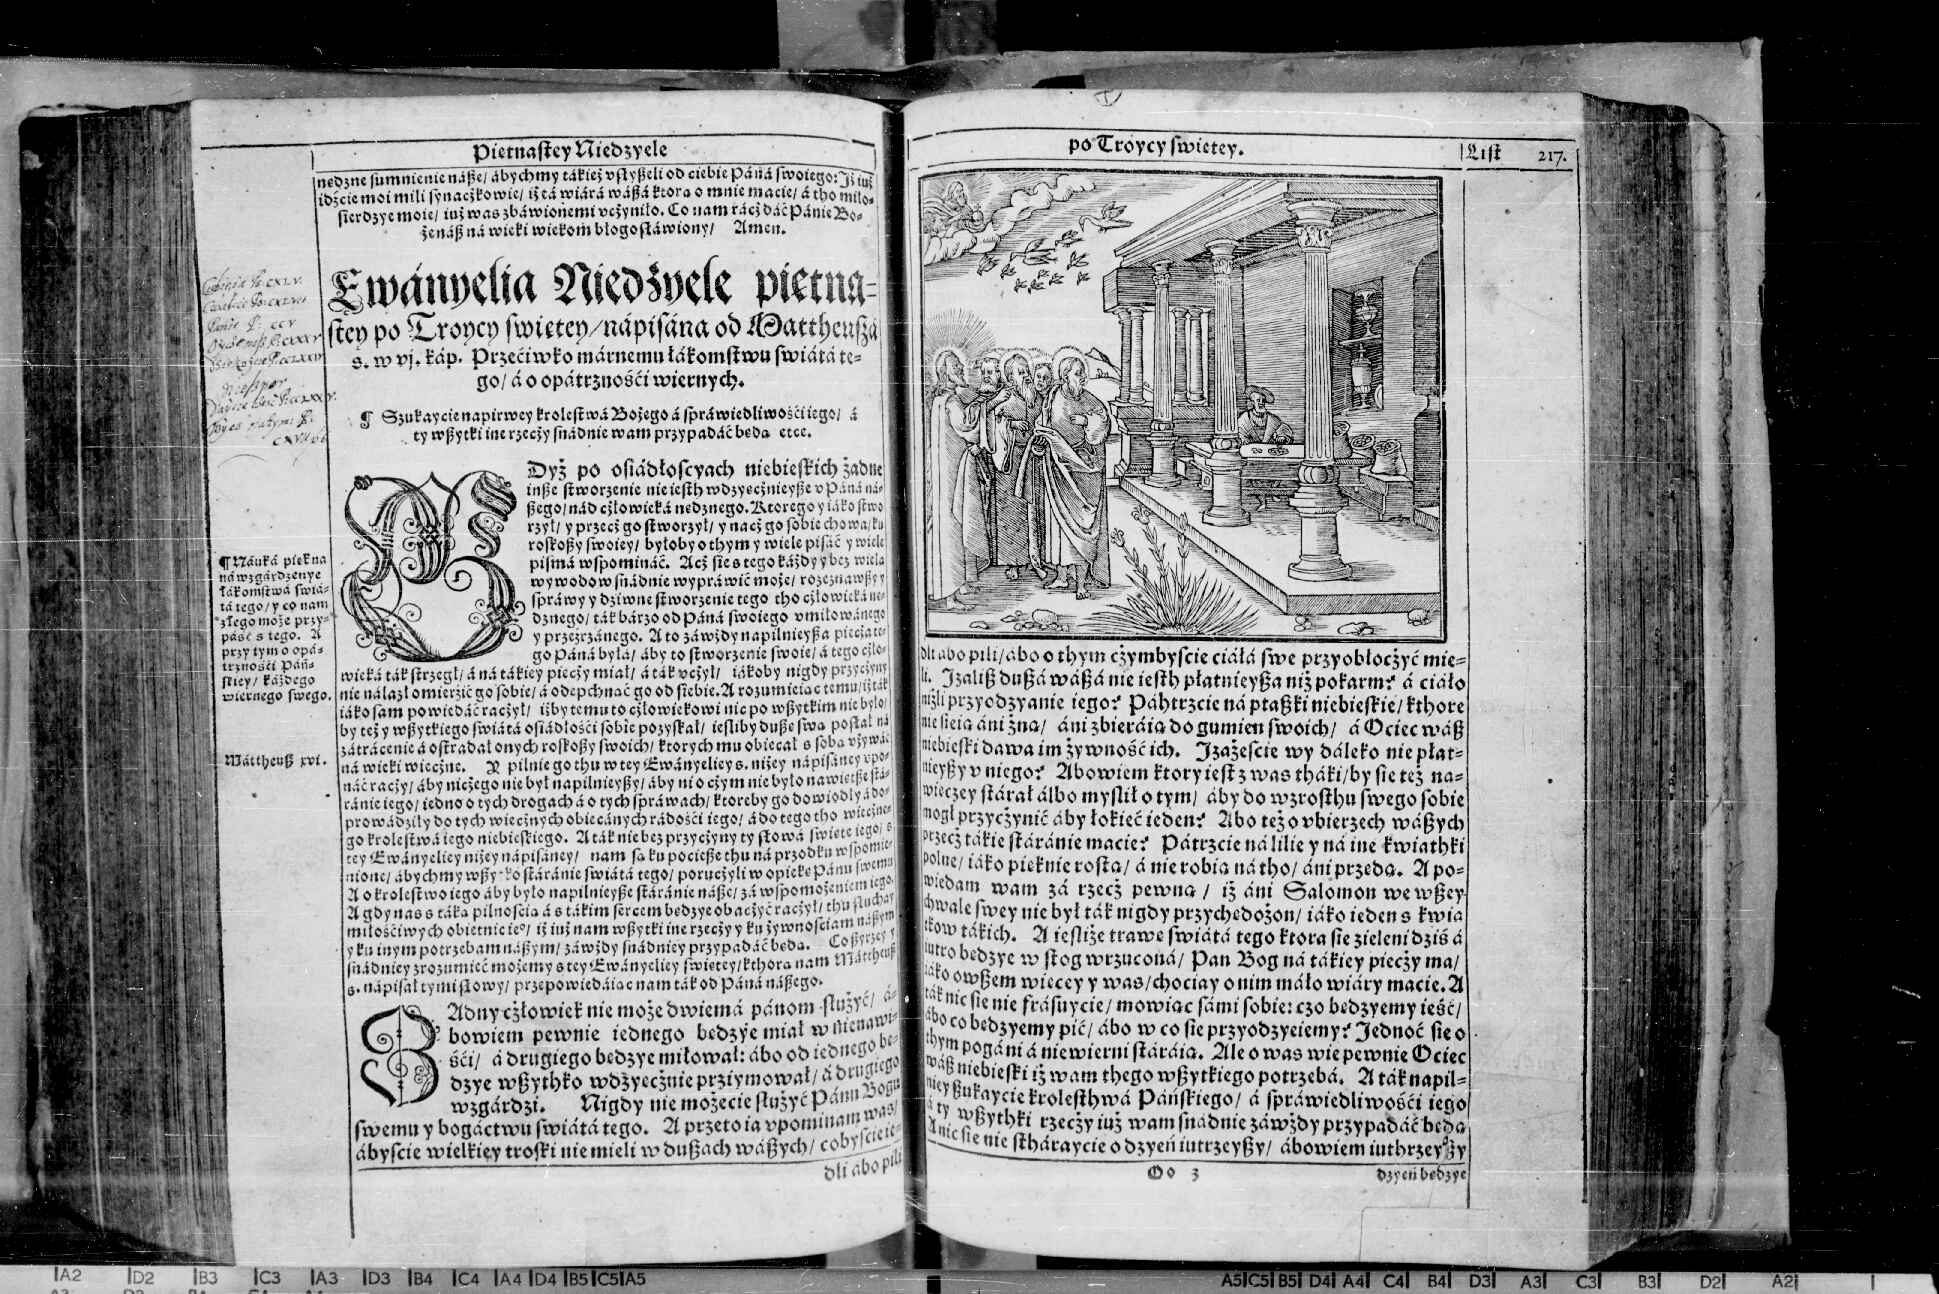 Piętnastey Niedzyele
nędzne sumnienie násze/ ábychmy tákież vslyszeli od ciebie Páná swoiego: Jż iuż
idźcie moi mili synaczkowie/ iż tá wiárá wászá ktora o mnie macie/ á tho milo-
sierdzye moie/ iuż was zbáwionemi vczyniło. Co nam rácż dáć Pánie Bo-
że nász ná wieki wiekom błogosłáwiony/ Amen.
Ewányelia Niedźyele piętná-
stey po Troycy swiętey/ nápisána od Mattheuszá
s. w vj. káp. Przećiwko márnemu łákomstwu swiátá te-
go/ á o opátrznośći wiernych.
¶ Szukaycie napirwey krolestwá Bożego á spráwiedliwośći iego/ á
ty wszytki ine rzeczy snádnie wam przypadáć będą etce.
GDyż po osiádłoscyach niebieskich żadne
insze stworzenie nie iesth wdzyęcznieysze v Páná ná-
szego/ nád człowieká nędznego. Ktorego y iáko stwo
rzył/ y przecż go stworzył/ y nacż go sobie chowa/ ku
roskoszy swoiey/ byłoby o thym y wiele pisáć y wiele
pismá wspomináć. Acż się s tego káżdy y bez wiela
wywodow snádnie wypráwić może/ rozeznawszy y
spráwy y dziwne stworzenie tego tho człowieká nę-
dznego/ ták bárzo od Páná swoiego vmiłowánego
y przeźrzánego. A to záwżdy napilnieysza piecza te-
go Páná byłá/ áby to stworzenie swoie/ á tego czło-
wieká ták strzegł/ á ná tákiey pieczy miał/ á ták vczył/ iákoby nigdy przyczyny
nie nálazł omierzić go sobie/ á odepchnąć go od siebie. A rozumieiąc temu/ iż ták
iáko sam powiedáć raczył/ iżby temu to człowiekowi nic po wszytkim nie było/
by też y wszytkiego swiátá osiádłośći sobie pozyskał/ iesliby duszę swą posłał ná
zátrácenie á ostradał onych roskoszy swoich/ ktorych mu obiecał s sobą vżywáć
ná wieki wieczne. Y pilnie go thu w tey Ewányeliey s. niżey nápisáney vpo-
náć raczy/ áby niczego nie był napilnieyszy/ áby ni o czym nie było nawiętsze stá-
ránie iego/ iedno o tych drogach á o tych spráwach/ ktoreby go dowiodły á do-
prowádziły do tych wiecznych obiecánych rádośći iego/ á do tego tho wieczne-
go krolestwá iego niebieskiego. A ták nie bez przyczyny ty słowá święte iego/ s
tey Ewányeliey niżey nápisáney/ nam są ku pociesze thu ná przodku wspomie-
nione/ ábychmy wszytko stáránie swiátá tego/ poruczyli w opiekę Pánu swemu
A o krolestwo iego áby było napilnieysze stáránie násze/ zá wspomożeniem iego.
A gdy nas s táką pilnoscią á s tákim sercem będzye obaczyć raczył/ thu słuchay
miłośćiwych obietnic ie°/ iż iuż nam wszytki ine rzeczy y ku żywnosciam nászym
y ku inym potrzebam nászym/ záwżdy snádniey przypadáć będą. Co szyrzey y
snádniey zrozumieć możemy s tey Ewányeliey świętey/ kthorą nam Mátheusz
s. nápisał tymi słowy/ przepowiedáiąc nam ták od Páná nászego.
ŻAdny człowiek nie może dwiemá pánom służyć/ á-
bowiem pewnie iednego będzye miał w nienawi-
śći/ á drugiego będzye miłował: ábo od iednego bę-
dzye wszythko wdzyęcznie prziymował/ á drugiego
wzgárdzi. Nigdy nie możecie służyć Pánu Bogu
swemu y bogáctwu swiátá tego. A przeto ia vpominam was/
ábyscie wielkiey troski nie mieli w duszach wászych/ cobyscie ie-
dli abo pili
¶ Náuká piękna
ná wzgárdzenye
łákomstwá swiá-
tá tego/ y co nam
złego może przy-
páść s tego. A
przy tym o opá-
trznośći Páń-
skiey/ każdego
wiernego swego.
Mattheusz xvi.
po Troycy swiętey.
List 217.
dli abo pili/ ábo o thym czymbyscie ciáłá swe przyobłoczyć mie-
li. Jzalisz duszá wászá nie iesth płatnieysza niż pokarm? á ciáło
niżli przyodzyanie iego? Páthrzcie ná ptaszki niebieskie/ kthore
nie sieią áni żną/ áni zbieráią do gumien swoich/ á Ociec wász
niebieski dawa im żywność ich. Jzażescie wy dáleko nie płat-
nieyszy v niego? Abowiem ktory iest z was tháki/ by się też na-
więczey stárał álbo myslił o tym/ áby do wzrosthu swego sobie
mogł przyczynić áby łokieć ieden? Abo też o vbierzech wászych
przecż tákie stáránie macie? Pátrzcie ná lilie y ná ine kwiathki
polne/ iáko pięknie rostą/ á nie robią ná tho/ áni przędą. A po-
wiedam wam zá rzecż pewną/ iż áni Sálomon we wszey
chwale swey nie był ták nigdy przychędożon/ iáko ieden s kwia
tkow tákich. A iesliże trawę swiátá tego ktora się zieleni dziś á
iutro będzye w stog wrzuconá/ Pan Bog ná tákiey pieczy ma/
iáko owszem więcey y was/ chociay o nim máło wiáry macie. A
ták nic się nie frásuycie/ mowiąc sámi sobie: czo będzyemy ieść/
ábo co będzyemy pić/ ábo w co się przyodzyeiemy? Jednoć się o
thym pogáni á niewierni stáráią. Ale o was wie pewnie Ociec
wász niebieski iż wam thego wszytkiego potrzebá. A ták napil-
niey szukaycie krolesthwá Páńskiego/ á spráwiedliwośći iego
á ty wszythki rzeczy iuż wam snádnie záwżdy przypadáć będą
A nic się nie stháraycie o dzyeń iutrzeyszy/ ábowiem iuthrzeyszy
Oo 3
dzyeń będzye
A2 D2 B3 C3 A3 D3 B4 C4 A4 D4 B5 C5 A5
A5 C5 B5 D4 A4 C4 B4 D3 A3 C3 B3 D2 A2